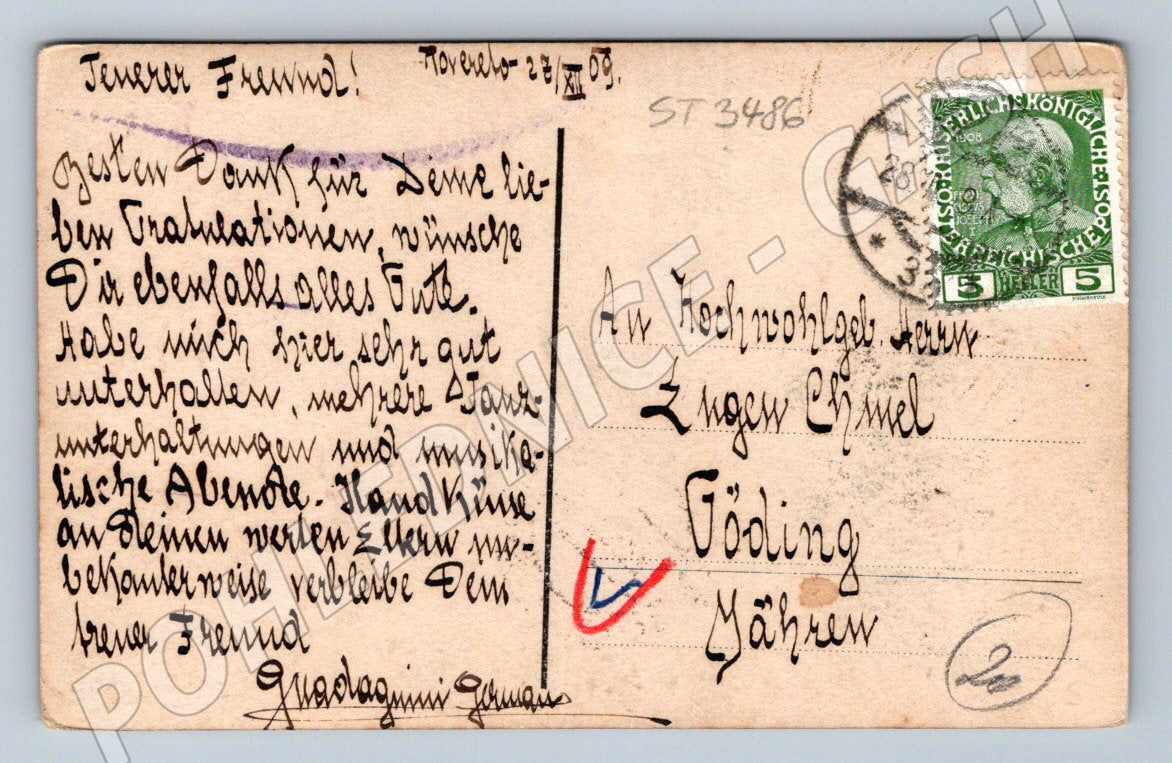 Teuerer Freund!
Rovereto - 27/XII 09.
ST 3486
Besten Dank für Deine lie-
ben Gratulationen, wünsche
Dir ebenfalls alles Gute.
Habe mich hier sehr gut
unterhalten, mehrere Tanz-
unterhaltungen und musika-
lische Abende. Handküsse
an Deinen werten Eltern un-
bekanterweise verbleibe Dein
treuer Freund
Guadagnini German
An Hochwohlgeb. Herrn
Eugen Chmel
Göding
Mähren
20
KAISERLICHE KÖNIGLICHE
ÖSTERREICHISCHE POST
1908
5 HELLER 5
28
POHLEDNICE - GASH